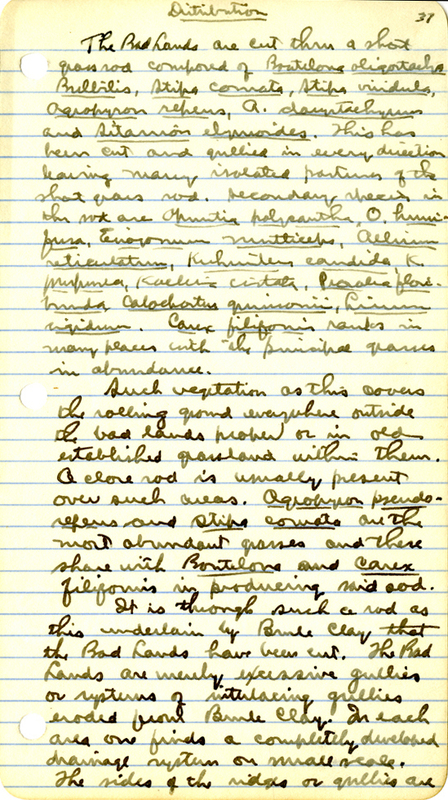 Distribution
37
The Bad Lands are cut thru a short
grass sod composed of Boutelona oligostachya
Bulbilis, Stipa comata, Stipa viridula,
Agropyron repens, A. dasystachyum
and Sitanion elymoides. This has
been cut and gullied in every direction
leaving many isolated portions of the
short grass sod. Secondary species in
the sod are Opuntia polycantha, O. humi-
fusa, Eriogonum multiceps, Allium
reticulatum, Kuhnistera candida, K.
purpurea, Koeleria cristata, Psoralia flori-
bunda Calochortus gunnisonii, Linum
rigidum. Carex filifomis ranks in
many places with the principal grasses
in abundance.
Such vegetation as this covers
the rolling ground everywhere outside
the bad lands proper or in old
established grassland within them.
A close sod is usually present
over such areas. Agropyron pseudo-
repens and Stipa comata are the
most abundant grasses and these
share with Boutelona and Carex
filifomis in producing said sod.
It is through such a sod as
this underlain by Brule Clay that
the Bad Lands have been cut. The Bad
Lands are merely excessive gullies
or systems of gullies
eroded from Brule Clay. In each
area one finds a completely developed
drainage system on small scale.
The sides of the ridges or gullies are